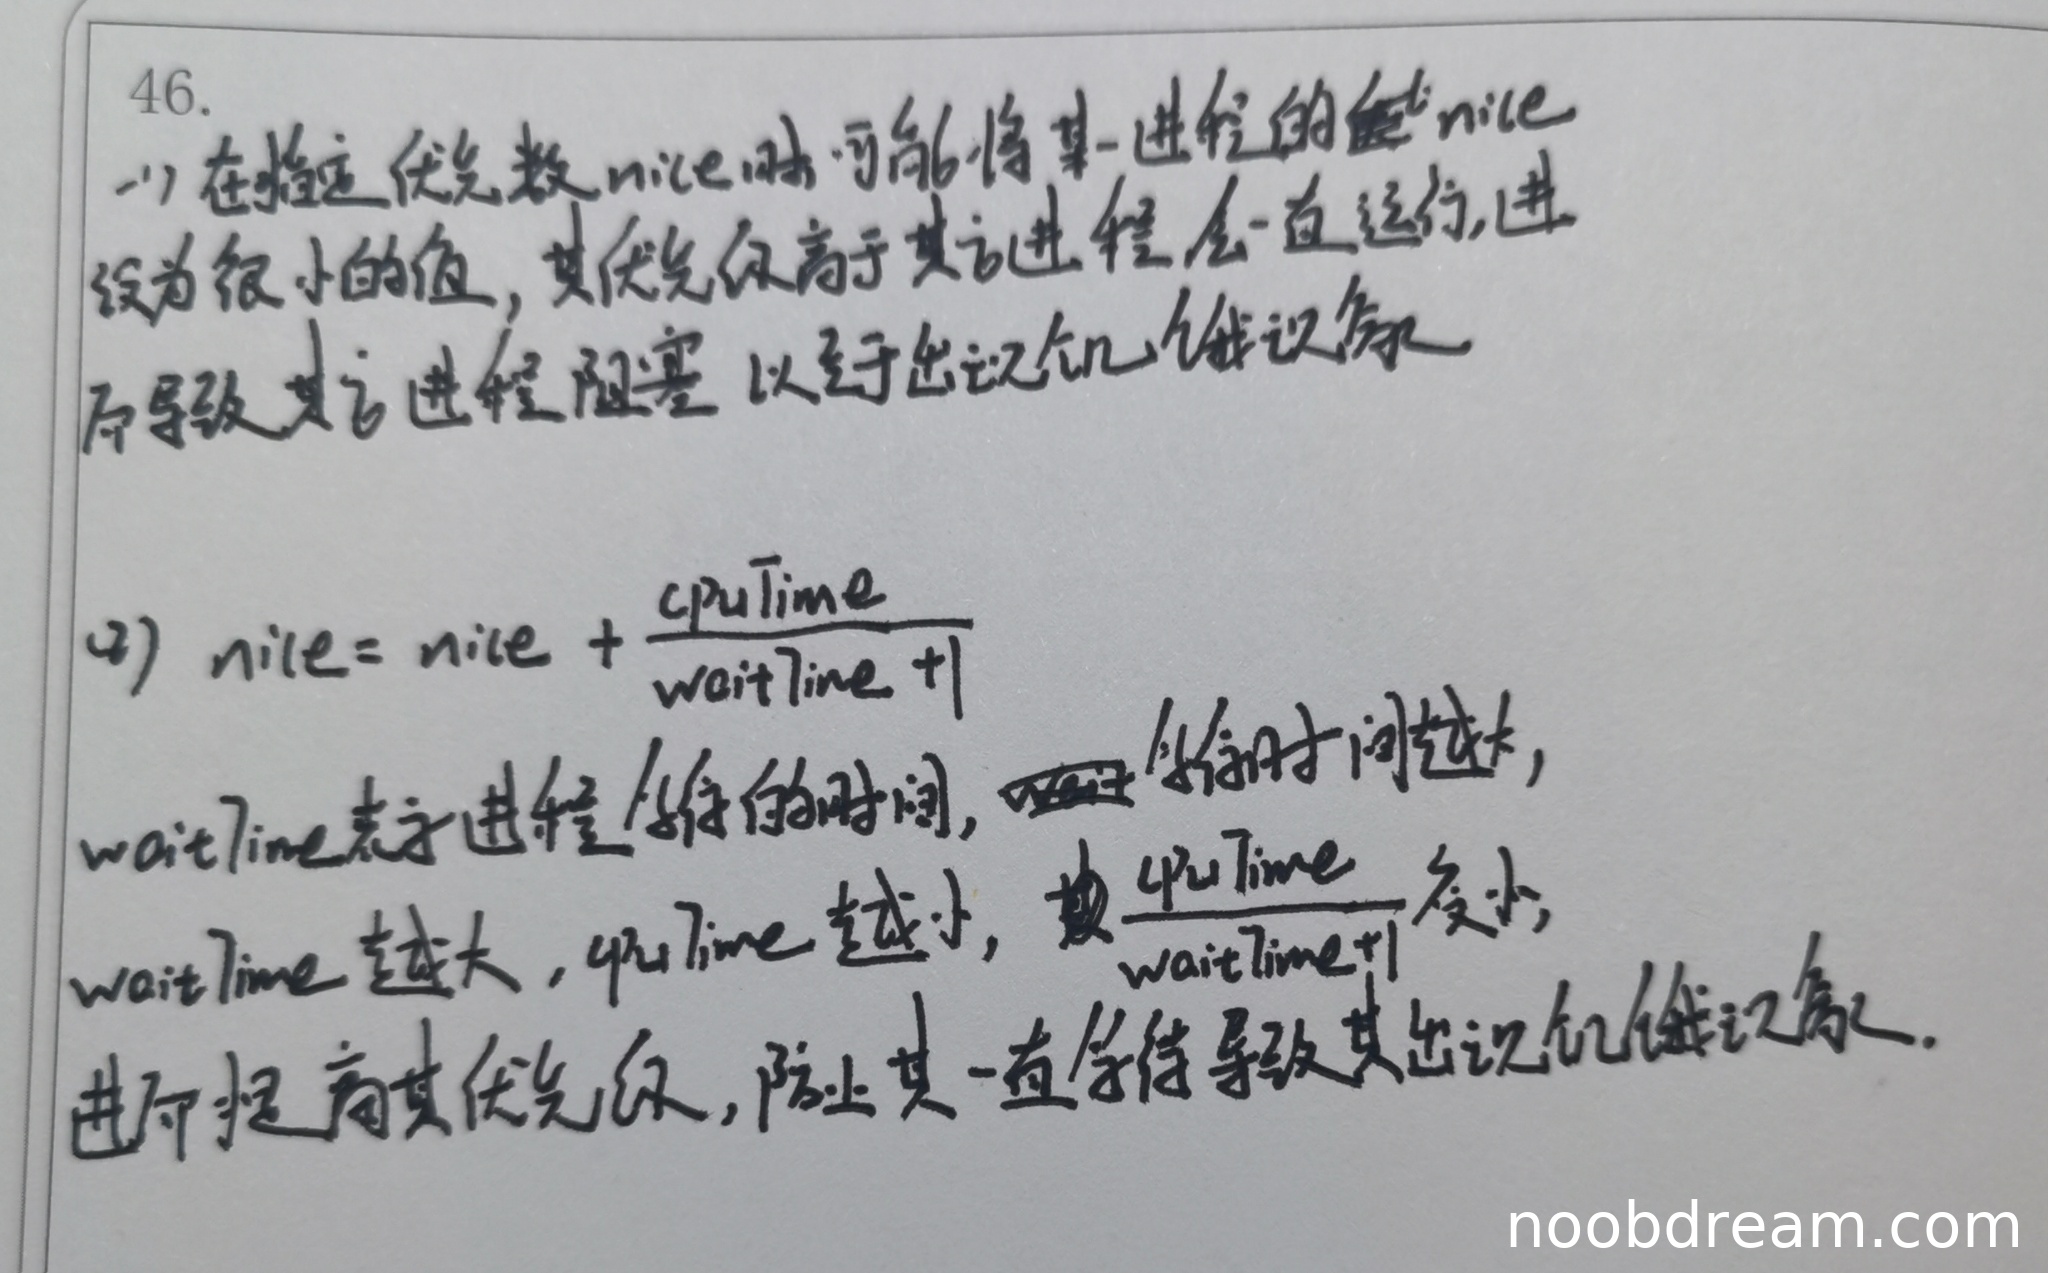 46.
(1) 在指定优先数nice时,可能将某一进程的 nice
设为很小的值,其优先级高于其它进程会一直运行,进
而导致其它进程阻塞 以至于出现饥饿现象
(2) nice = nice + cpuTime / waitTime + 1
waitTime表示进程等待的时间, 等待时间越大,
waitTime 越大, cpuTime 越小, cpuTime / waitTime+1 变小,
进而提高其优先级,防止其一直等待导致其出现饥饿现象.
noobdream.com